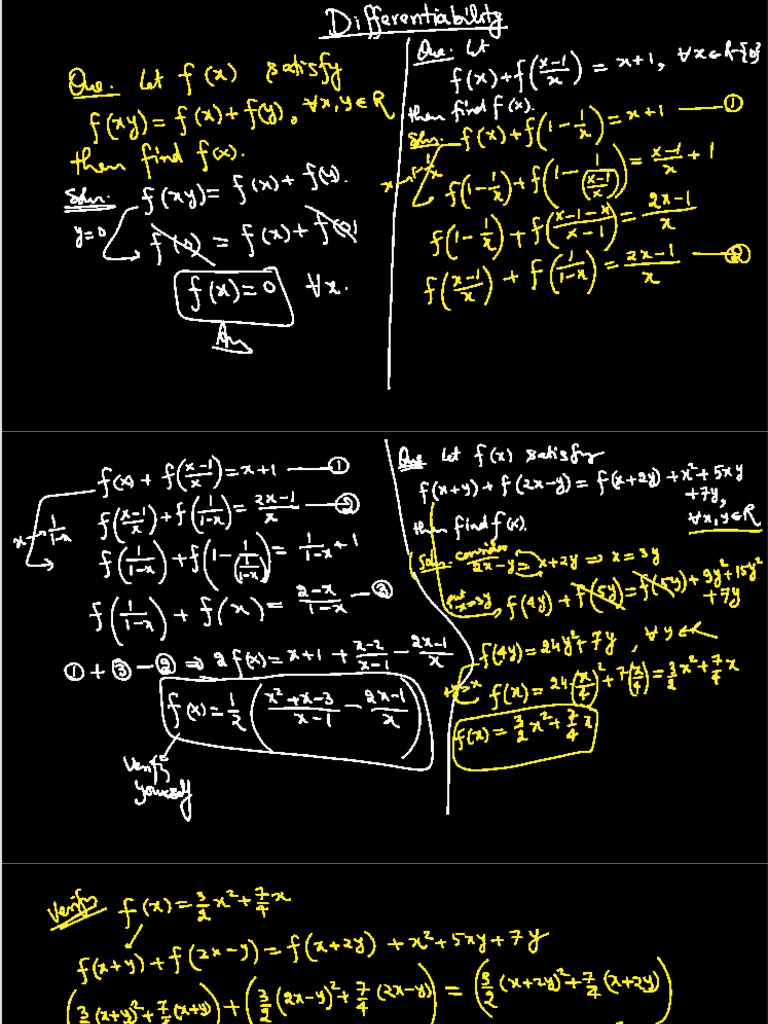 Differentiability
Que. Let f(x) satisfy
f(xy) = f(x) + f(y), ∀x, y ∈ R
then find f(x).
Soln. f(xy) = f(x) + f(y).
y=0
f(0) = f(x) + f(0)
f(x) = 0 ∀x.
Ans
Que. Let
f(x) + f((x-1)/x) = x+1, ∀x ∈ R-{0}
then find f(x).
Soln. f(x) + f(1 - 1/x) = x+1 — ①
x → 1 - 1/x
f(1 - 1/x) + f(1 - 1/((x-1)/x)) = (x-1)/x + 1
f(1 - 1/x) + f((x-1-x)/(x-1)) = (2x-1)/x
f((x-1)/x) + f(1/(1-x)) = (2x-1)/x — ②
f(x) + f((x-1)/x) = x+1 — ①
f((x-1)/x) + f(1/(1-x)) = (2x-1)/x — ②
x → 1/(1-x)
f(1/(1-x)) + f(1 - 1/(1/(1-x))) = 1/(1-x) + 1
f(1/(1-x)) + f(x) = (2-x)/(1-x) — ③
① + ③ - ② ⇒ 2f(x) = x+1 + (x-2)/(x-1) - (2x-1)/x
f(x) = 1/2 ((x²+x-3)/(x-1) - (2x-1)/x)
Verify
yourself
Que Let f(x) satisfy
f(x+y) + f(2x-y) = f(x+2y) + x² + 5xy
+ 7y,
then find f(x). ∀x, y ∈ R
Soln consider
2x-y = x+2y ⇒ x = 3y
put x=3y f(4y) + f(5y) = f(5y) + 9y² + 15y²
+ 7y
f(4y) = 24y² + 7y, ∀y ∈ R
4y=x f(x) = 24(x/4)² + 7(x/4) = 3/2 x² + 7/4 x
f(x) = 3/2 x² + 7/4 x
Verify f(x) = 3/2 x² + 7/4 x
f(x+y) + f(2x-y) = f(x+2y) + x² + 5xy + 7y
(3/2 (x+y)² + 7/4 (x+y)) + (3/2 (2x-y)² + 7/4 (2x-y)) = (3/2 (x+2y)² + 7/4 (x+2y))